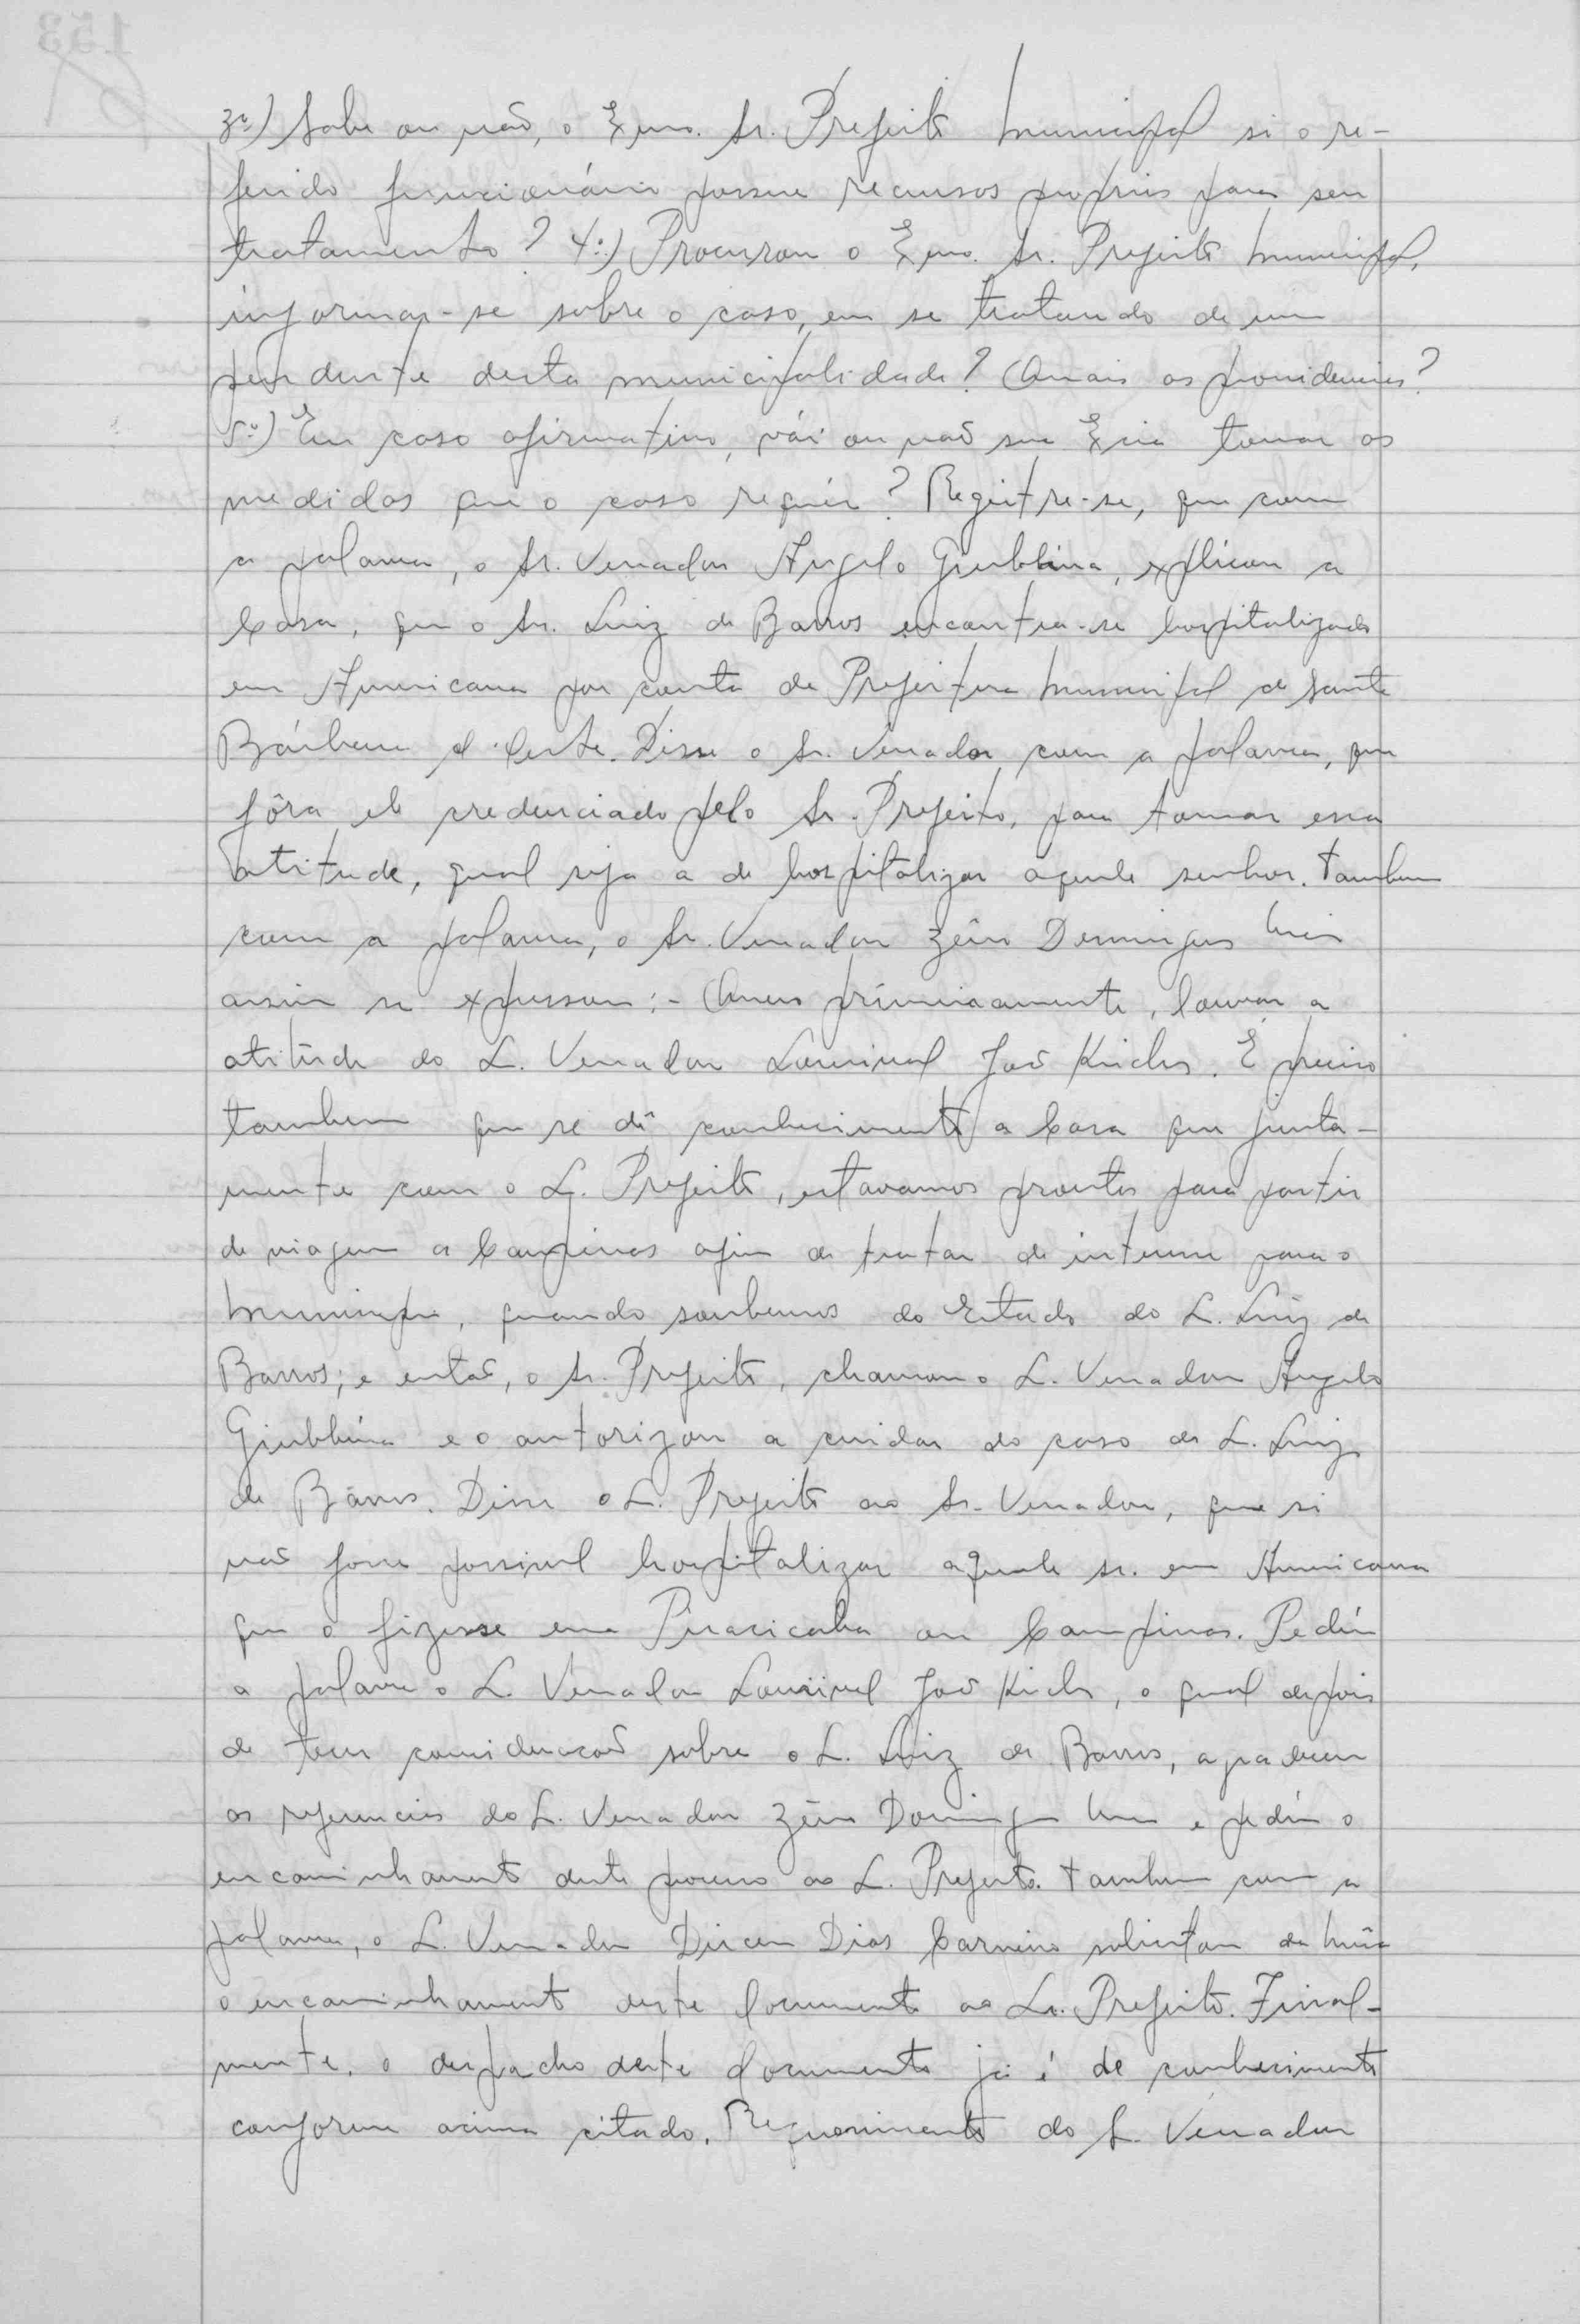 3º) Sabe ou não, o Exmo. Sr. Prefeito Municipal si o re-
ferido funcionário possue recursos proprios para seu
tratamento? 4º) Procurou o Exmo. Sr. Prefeito Municipal,
informar-se sobre o caso, em se tratando de um
pendente desta municipalidade? Quais as providencias?
5º) Em caso afirmativo, vái ou não sua Excia tomar as
medidas que o caso requér? Registre-se, que com
a palavra, o Sr. Vereador Angelo Giubbina, explicou a
Casa, que o Sr. Luiz de Barros encontra-se hospitalizado
em Americana por conta da Prefeitura Municipal de Santa
Bárbara d'Oeste. Disse o Sr. Vereador com a palavra, que
fôra ele credenciado pelo Sr. Prefeito, para tomar essa
atitude, qual seja a de hospitalizar aquele senhor. Tambem
com a palavra, o Sr. Vereador Zêno Domingos
assim se expressou:- Quero primeiramente, louvar a
atitude do S. Vereador Lourival João. É preciso
tambem que se dê conhecimento a Casa que junta-
mente com o S. Prefeito, estavamos prontos para partir
de viagem a Campinas afim de tratar de interesse para o
Municipio, quando soubemos do Estado do S. Luiz de
Barros; e então, o Sr. Prefeito, chamou o S. Vereador Angelo
Giubbina e o autorizou a cuidar do caso do S. Luiz
de Barros. Disse o S. Prefeito ao Sr. Vereador, que si
não fosse possivel hospitalizar aquele sr. em Americana
que o fizesse em Piracicaba ou Campinas. Pediu
a palavra o S. Vereador Lourival João, o qual depois
de tecer consideração sobre o S. Luiz de Barros, agradeceu
as referencias do S. Vereador Zêno Domingos e pediu o
encaminhamento deste processo ao S. Prefeito. Tambem com a
palavra, o S. Vereador Dirceu Dias Carneiro solicitou da Mêsa
o encaminhamento deste documento ao Sr. Prefeito. Final-
mente, o despacho deste documento já é de conhecimento
conforme acima citado. Requerimento do S. Vereador